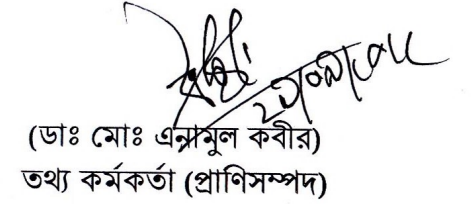 (ডাঃ মোঃ এনামুল কবীর)
তথ্য কর্মকর্তা (প্রাণিসম্পদ)